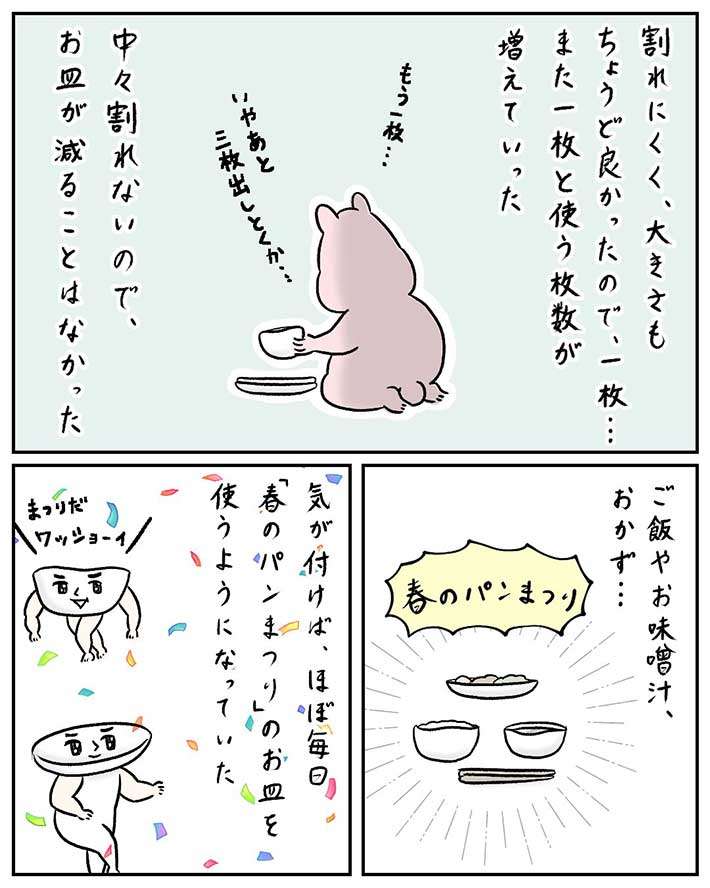 割れにくく、大きさも
ちょうど良かったので、一枚…
また一枚と使う枚数が
増えていった
もう一枚…
いやあと
三枚出しとくか…
中々割れないので、
お皿が減ることはなかった
ご飯やお味噌汁、
おかず…
春のパンまつり
気が付けば、ほぼ毎日
「春のパンまつり」のお皿を
使うようになっていた
まつりだ
ワッショーイ